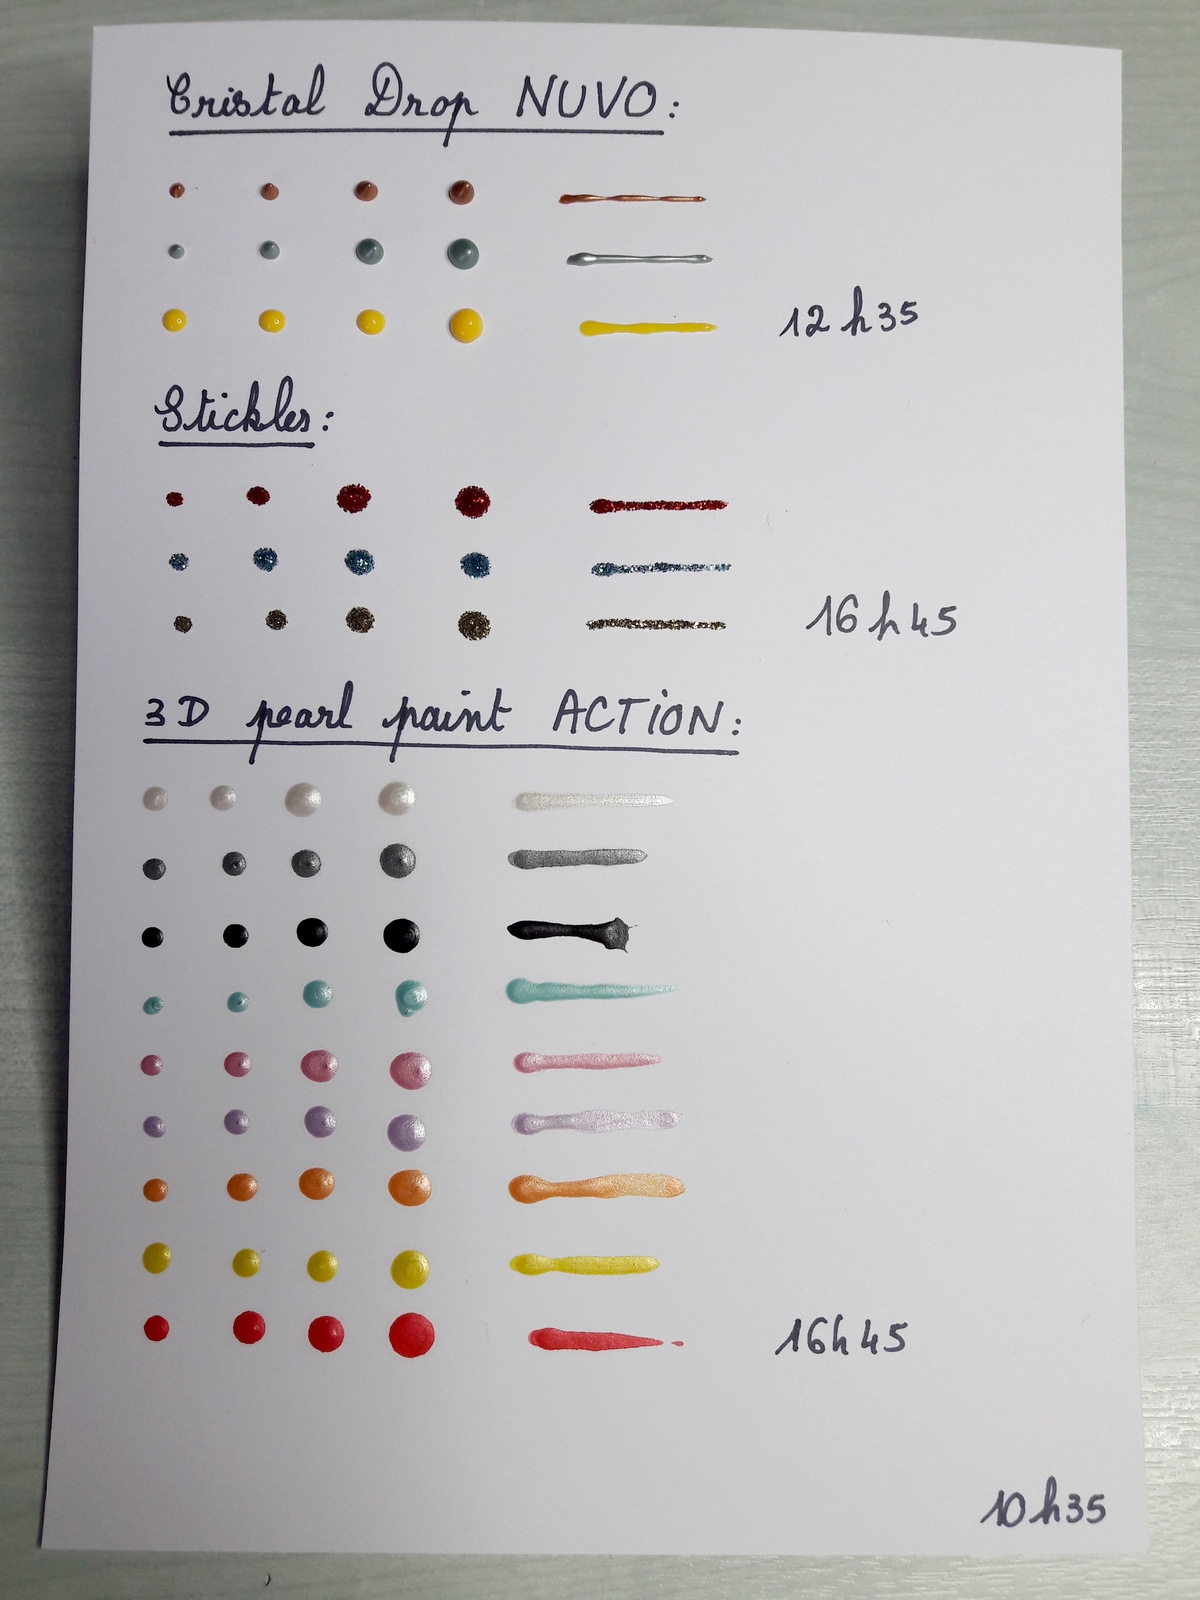 Cristal Drop NUVO:
12 h 35
Stickles:
16 h 45
3D pearl paint ACTiON:
16h45
10h35